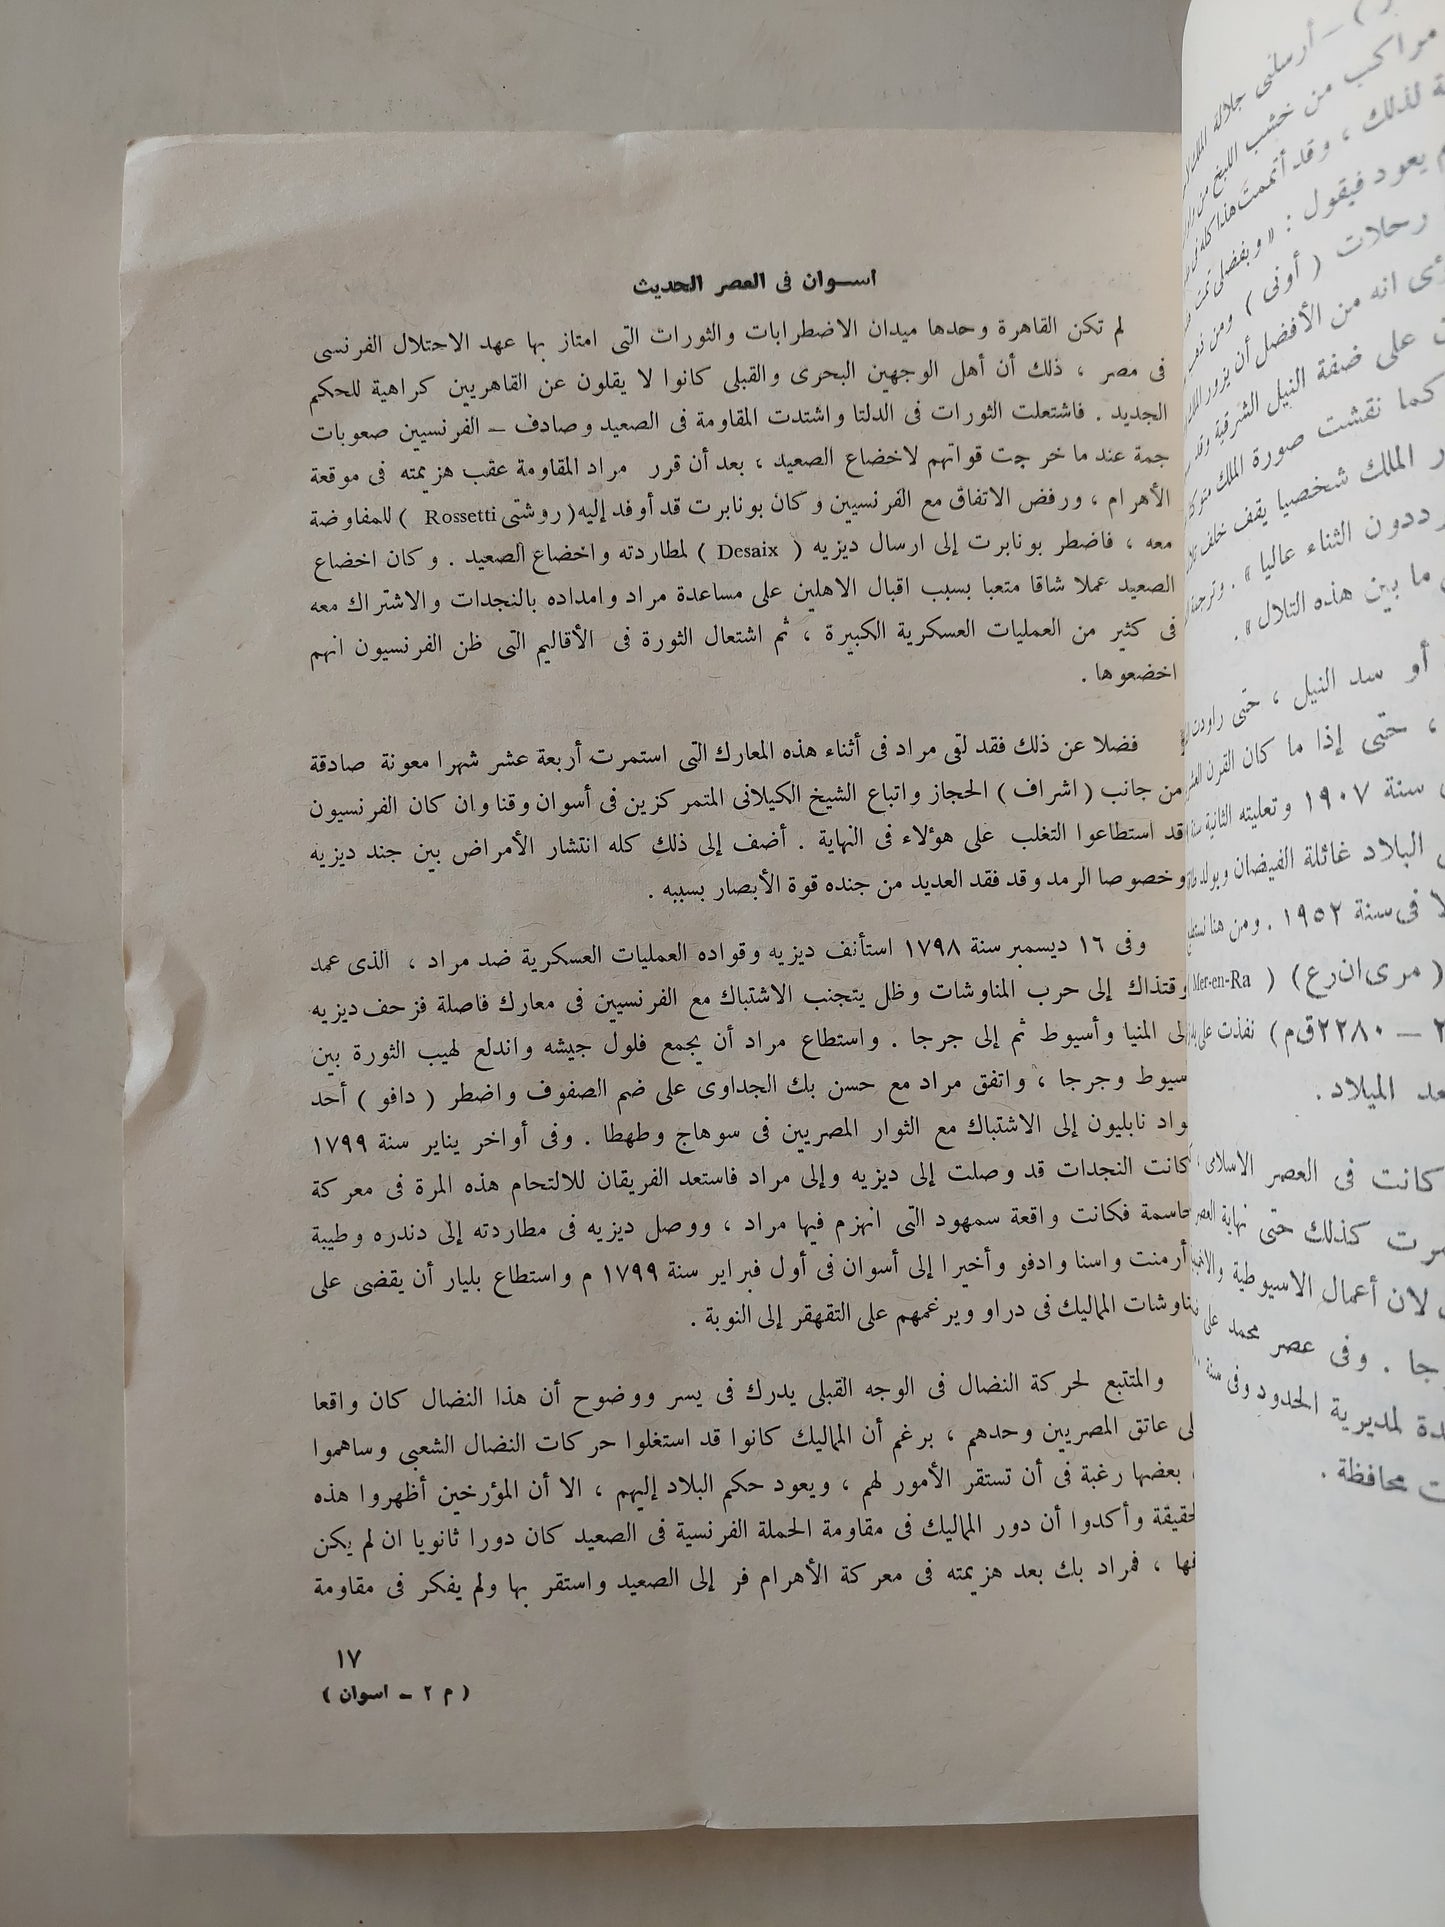 اسوان فى العصر الحديث
لم تكن القاهرة وحدها ميدان الاضطرابات والثورات التى امتاز بها عهد الاحتلال الفرنسى
فى مصر ، ذلك أن أهل الوجهين البحرى والقبلى كانوا لا يقلون عن القاهريين كراهية للحكم
الجديد . فاشتعلت الثورات فى الدلتا واشتدت المقاومة فى الصعيد وصادف – الفرنسيين صعوبات
جمة عند ما خرجت قواتهم لاخضاع الصعيد ، بعد أن قرر مراد المقاومة عقب هزيمته فى موقعة
الأهرام ، ورفض الاتفاق مع الفرنسيين وكان بونابرت قد أوفد إليه ( روشتى Rossetti ) للمفاوضة
معه ، فاضطر بونابرت إلى ارسال ديزيه ( Desaix ) لمطاردته واخضاع الصعيد . وكان اخضاع
الصعيد عملا شاقا متعبا بسبب اقبال الاهلين على مساعدة مراد وامداده بالنجدات والاشتراك معه
فى كثير من العمليات العسكرية الكبيرة ، ثم اشتعال الثورة فى الأقاليم التى ظن الفرنسيون انهم
اخضعوها .
فضلا عن ذلك فقد لقى مراد فى أثناء هذه المعارك التى استمرت أربعة عشر شهرا معونة صادقة
من جانب ( اشراف ) الحجاز واتباع الشيخ الكيلانى المتمركزين فى أسوان وقنا وان كان الفرنسيون
قد استطاعوا التغلب على هؤلاء فى النهاية . أضف إلى ذلك كله انتشار الأمراض بين جند ديزيه
وخصوصا الرمد وقد فقد العديد من جنده قوة الأبصار بسببه .
وفى ١٦ ديسمبر سنة ١٧٩٨ استأنف ديزيه وقواده العمليات العسكرية ضد مراد ، الذى عمد
وقتذاك إلى حرب المناوشات وظل يتجنب الاشتباك مع الفرنسيين فى معارك فاصلة فزحف ديزيه
إلى المنيا وأسيوط ثم إلى جرجا . واستطاع مراد أن يجمع فلول جيشه واندلع لهيب الثورة بين
سيوط وجرجا ، واتفق مراد مع حسن بك الجداوى على ضم الصفوف واضطر ( دافو ) أحد
واد نابليون إلى الاشتباك مع الثوار المصريين فى سوهاج وطهطا . وفى أواخر يناير سنة ١٧٩٩
كانت النجدات قد وصلت إلى ديزيه وإلى مراد فاستعد الفريقان للالتحام هذه المرة فى معركة
حاسمة فكانت واقعة سمهود التى انهزم فيها مراد ، ووصل ديزيه فى مطاردته إلى دندره وطيبة
أرمنت واسنا وادفو وأخيرا إلى أسوان فى أول فبراير سنة ١٧٩٩ م واستطاع بليار أن يقضى على
ناوشات المماليك فى دراو ويرغمهم على التقهقر إلى النوبة .
والمتتبع لحركة النضال فى الوجه القبلى يدرك فى يسر ووضوح أن هذا النضال كان واقعا
لى عاتق المصريين وحدهم ، برغم أن المماليك كانوا قد استغلوا حركات النضال الشعبى وساهموا
بعضها رغبة فى أن تستقر الأمور لهم ، ويعود حكم البلاد إليهم ، الا أن المؤرخين أظهروا هذه
لحقيقة وأكدوا أن دور المماليك فى مقاومة الحملة الفرنسية فى الصعيد كان دورا ثانويا ان لم يكن
فها ، فمراد بك بعد هزيمته فى معركة الأهرام فر إلى الصعيد واستقر بها ولم يفكر فى مقاومة
١٧
( م ٢ – اسوان )
أرسلنى جلالة
مراكب من خشب
لذلك ، وقد أتممت هذا كله
يعود فيقول : « وبفضلى تمت
رحلات ( أونى )
انه من الأفضل أن يزور
على ضفة النيل الشرقية
كما نقشت صورة الملك
الملك شخصيا يقف خلف
ددون الثناء عاليا » .
ما بين هذه التلال » .
أو سد النيل ، حتى
، حتى إذا ما كان القرن
سنة ١٩٠٧ وتعليته الثانية
البلاد غائلة الفيضان
فى سنة ١٩٥٢ . ومن هنا
( مرى ان رع ) ( Mer-en-Ra
– ٢٢٨٠ ق م ) نفذت على
عد الميلاد .
كانت فى العصر الاسلامى
مرت كذلك حتى نهاية
لان أعمال الاسيوطية
جا . وفى عصر محمد على
دة لمديرية الحدود وفى سنة
ت محافظة .